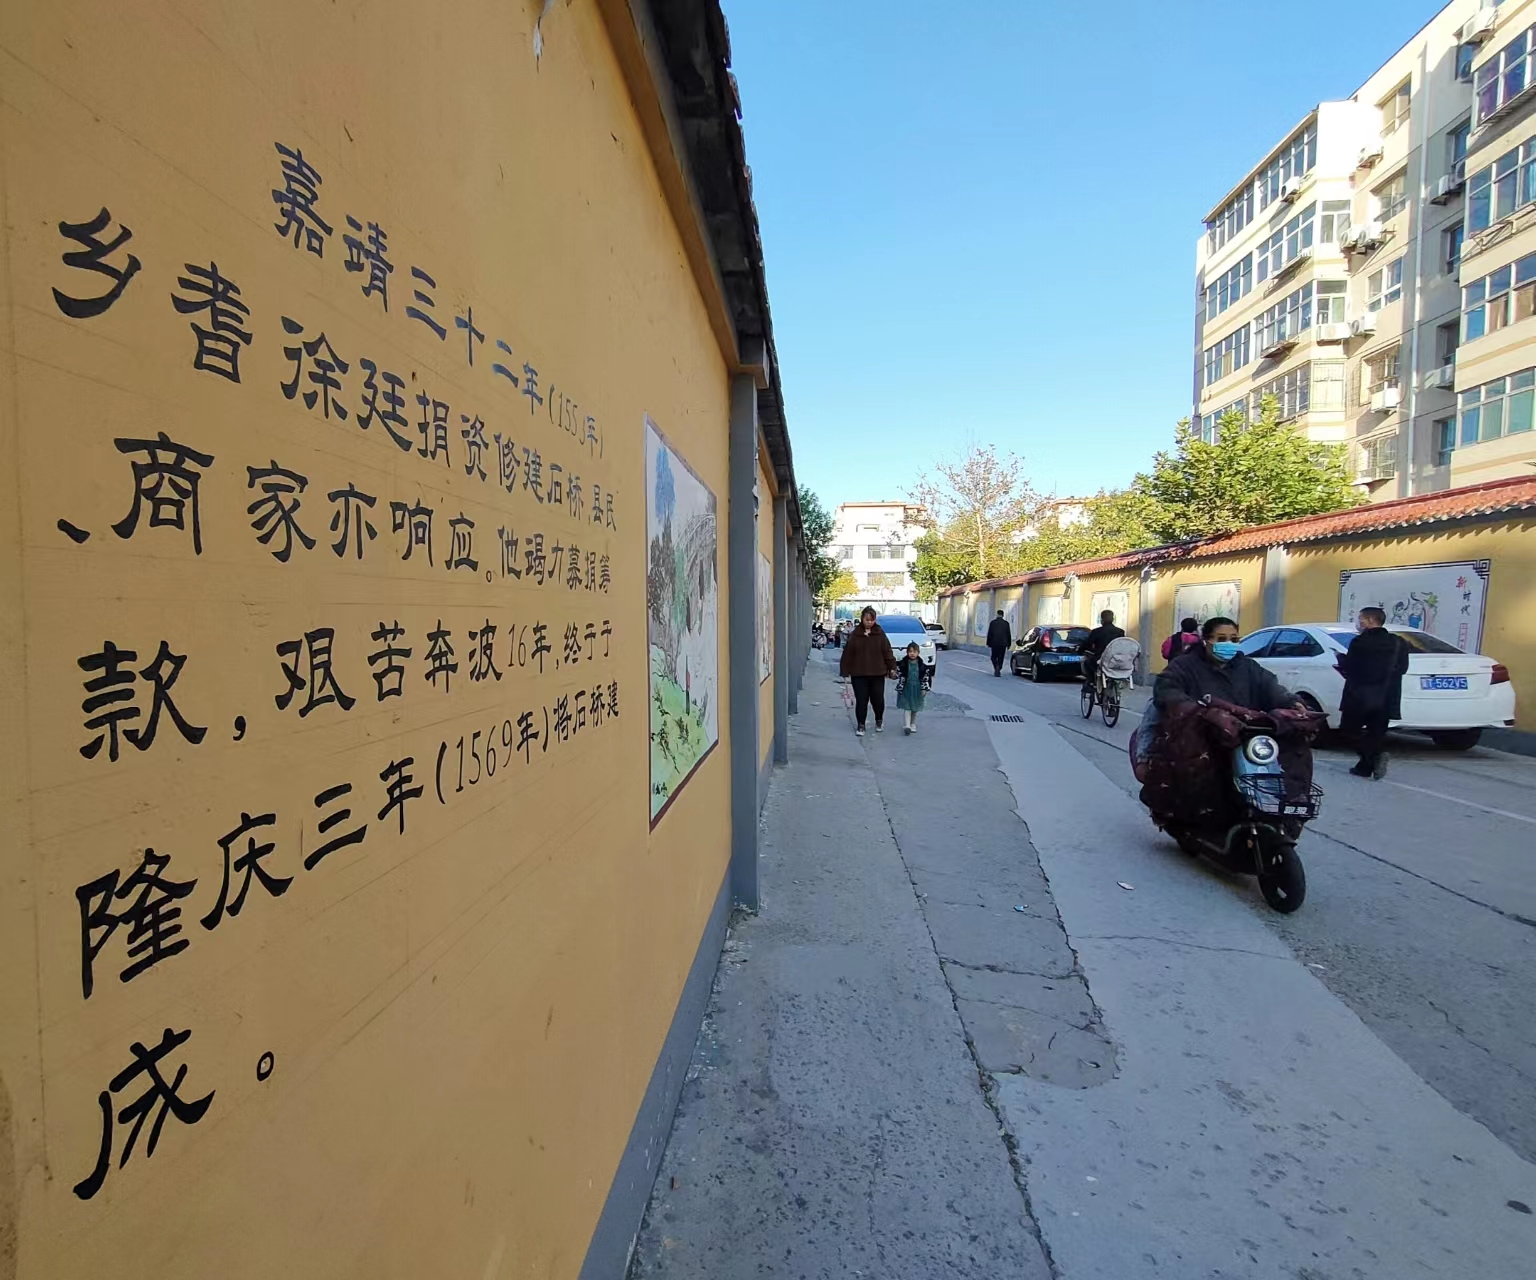 嘉靖三十二年(1553年)
乡耆徐廷捐资修建石桥,县民
、商家亦响应。他竭力募捐筹
款,艰苦奔波16年,终于于
隆庆三年(1569年)将石桥建
成。
新时代